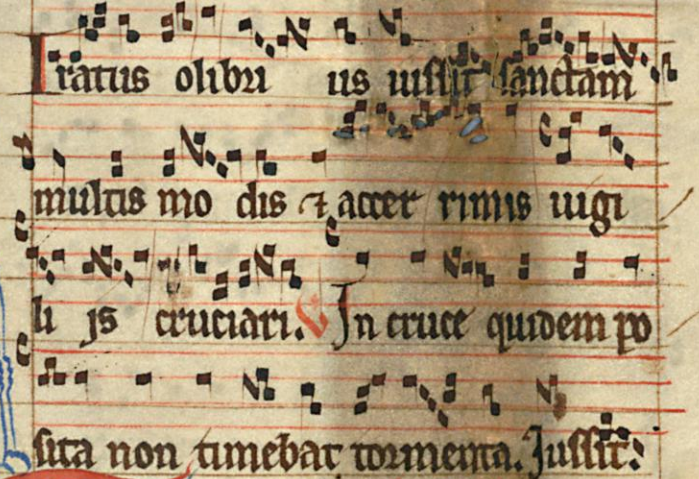 Iratus olibri us iussit sanctam
multis mo dis ⁊ accer rimis iugi
li is cruciari. V In cruce quidem po
sita non timebat tormenta. Jussit: